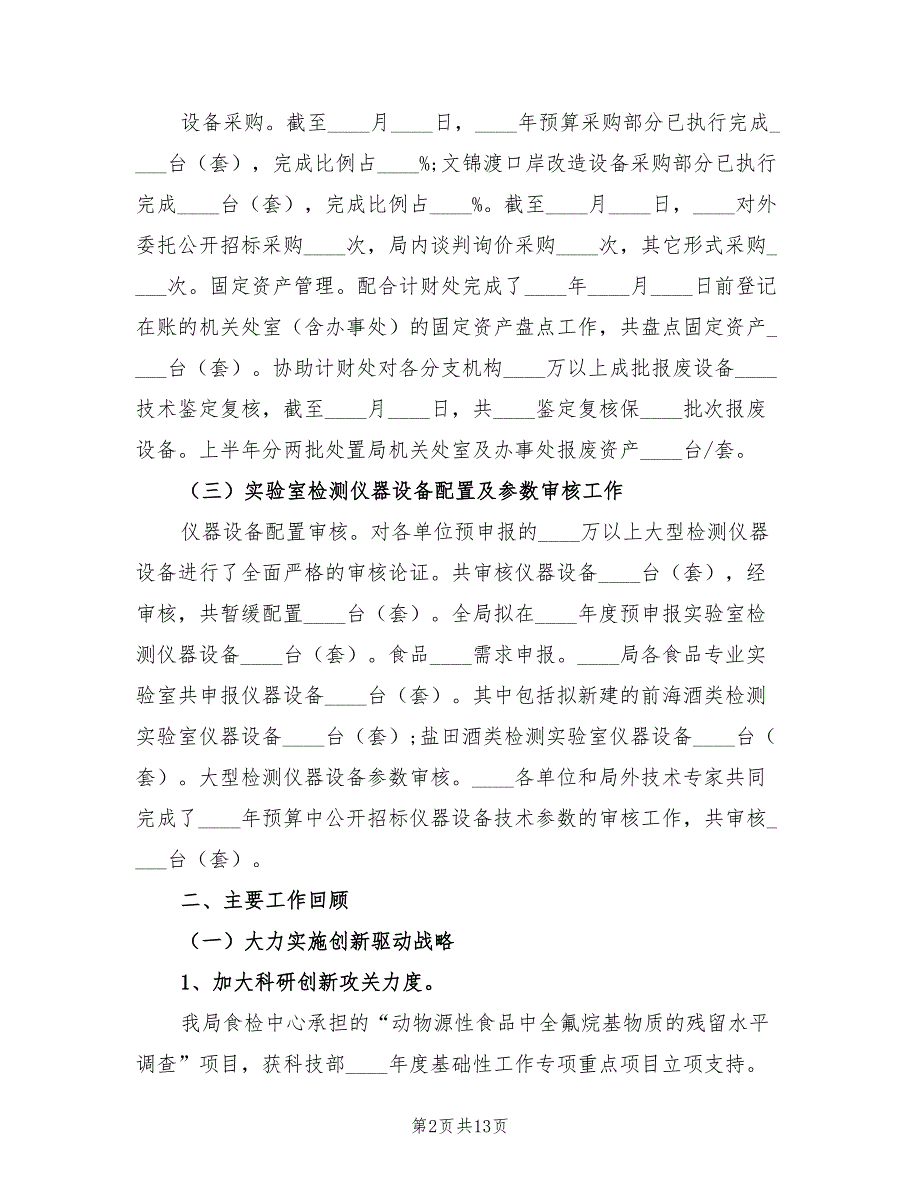 设备采购。截至____月____日，____年预算采购部分已执行完成_
___台（套），完成比例占____%;文锦渡口岸改造设备采购部分已执行
完成____台（套），完成比例占____%。截至____月____日，____对外
委托公开招标采购____次，局内谈判询价采购____次，其它形式采购_
___次。固定资产管理。配合计财处完成了____年____月____日前登记
在账的机关处室（含办事处）的固定资产盘点工作，共盘点固定资产_
___台（套）。协助计财处对各分支机构____万以上成批报废设备____
技术鉴定复核，截至____月____日，共____鉴定复核保____批次报废
设备。上半年分两批处置局机关处室及办事处报废资产____台/套。
（三）实验室检测仪器设备配置及参数审核工作
仪器设备配置审核。对各单位预申报的____万以上大型检测仪器
设备进行了全面严格的审核论证。共审核仪器设备____台（套），经
审核，共暂缓配置____台（套）。全局拟在____年度预申报实验室检
测仪器设备____台（套）。食品____需求申报。____局各食品专业实
验室共申报仪器设备____台（套）。其中包括拟新建的前海酒类检测
实验室仪器设备____台（套）;盐田酒类检测实验室仪器设备____台（
套）。大型检测仪器设备参数审核。____各单位和局外技术专家共同
完成了____年预算中公开招标仪器设备技术参数的审核工作，共审核_
___台（套）。
二、主要工作回顾
（一）大力实施创新驱动战略
1、加大科研创新攻关力度。
我局食检中心承担的“动物源性食品中全氟烷基物质的残留水平
调查”项目，获科技部____年度基础性工作专项重点项目立项支持。
第2页共13页